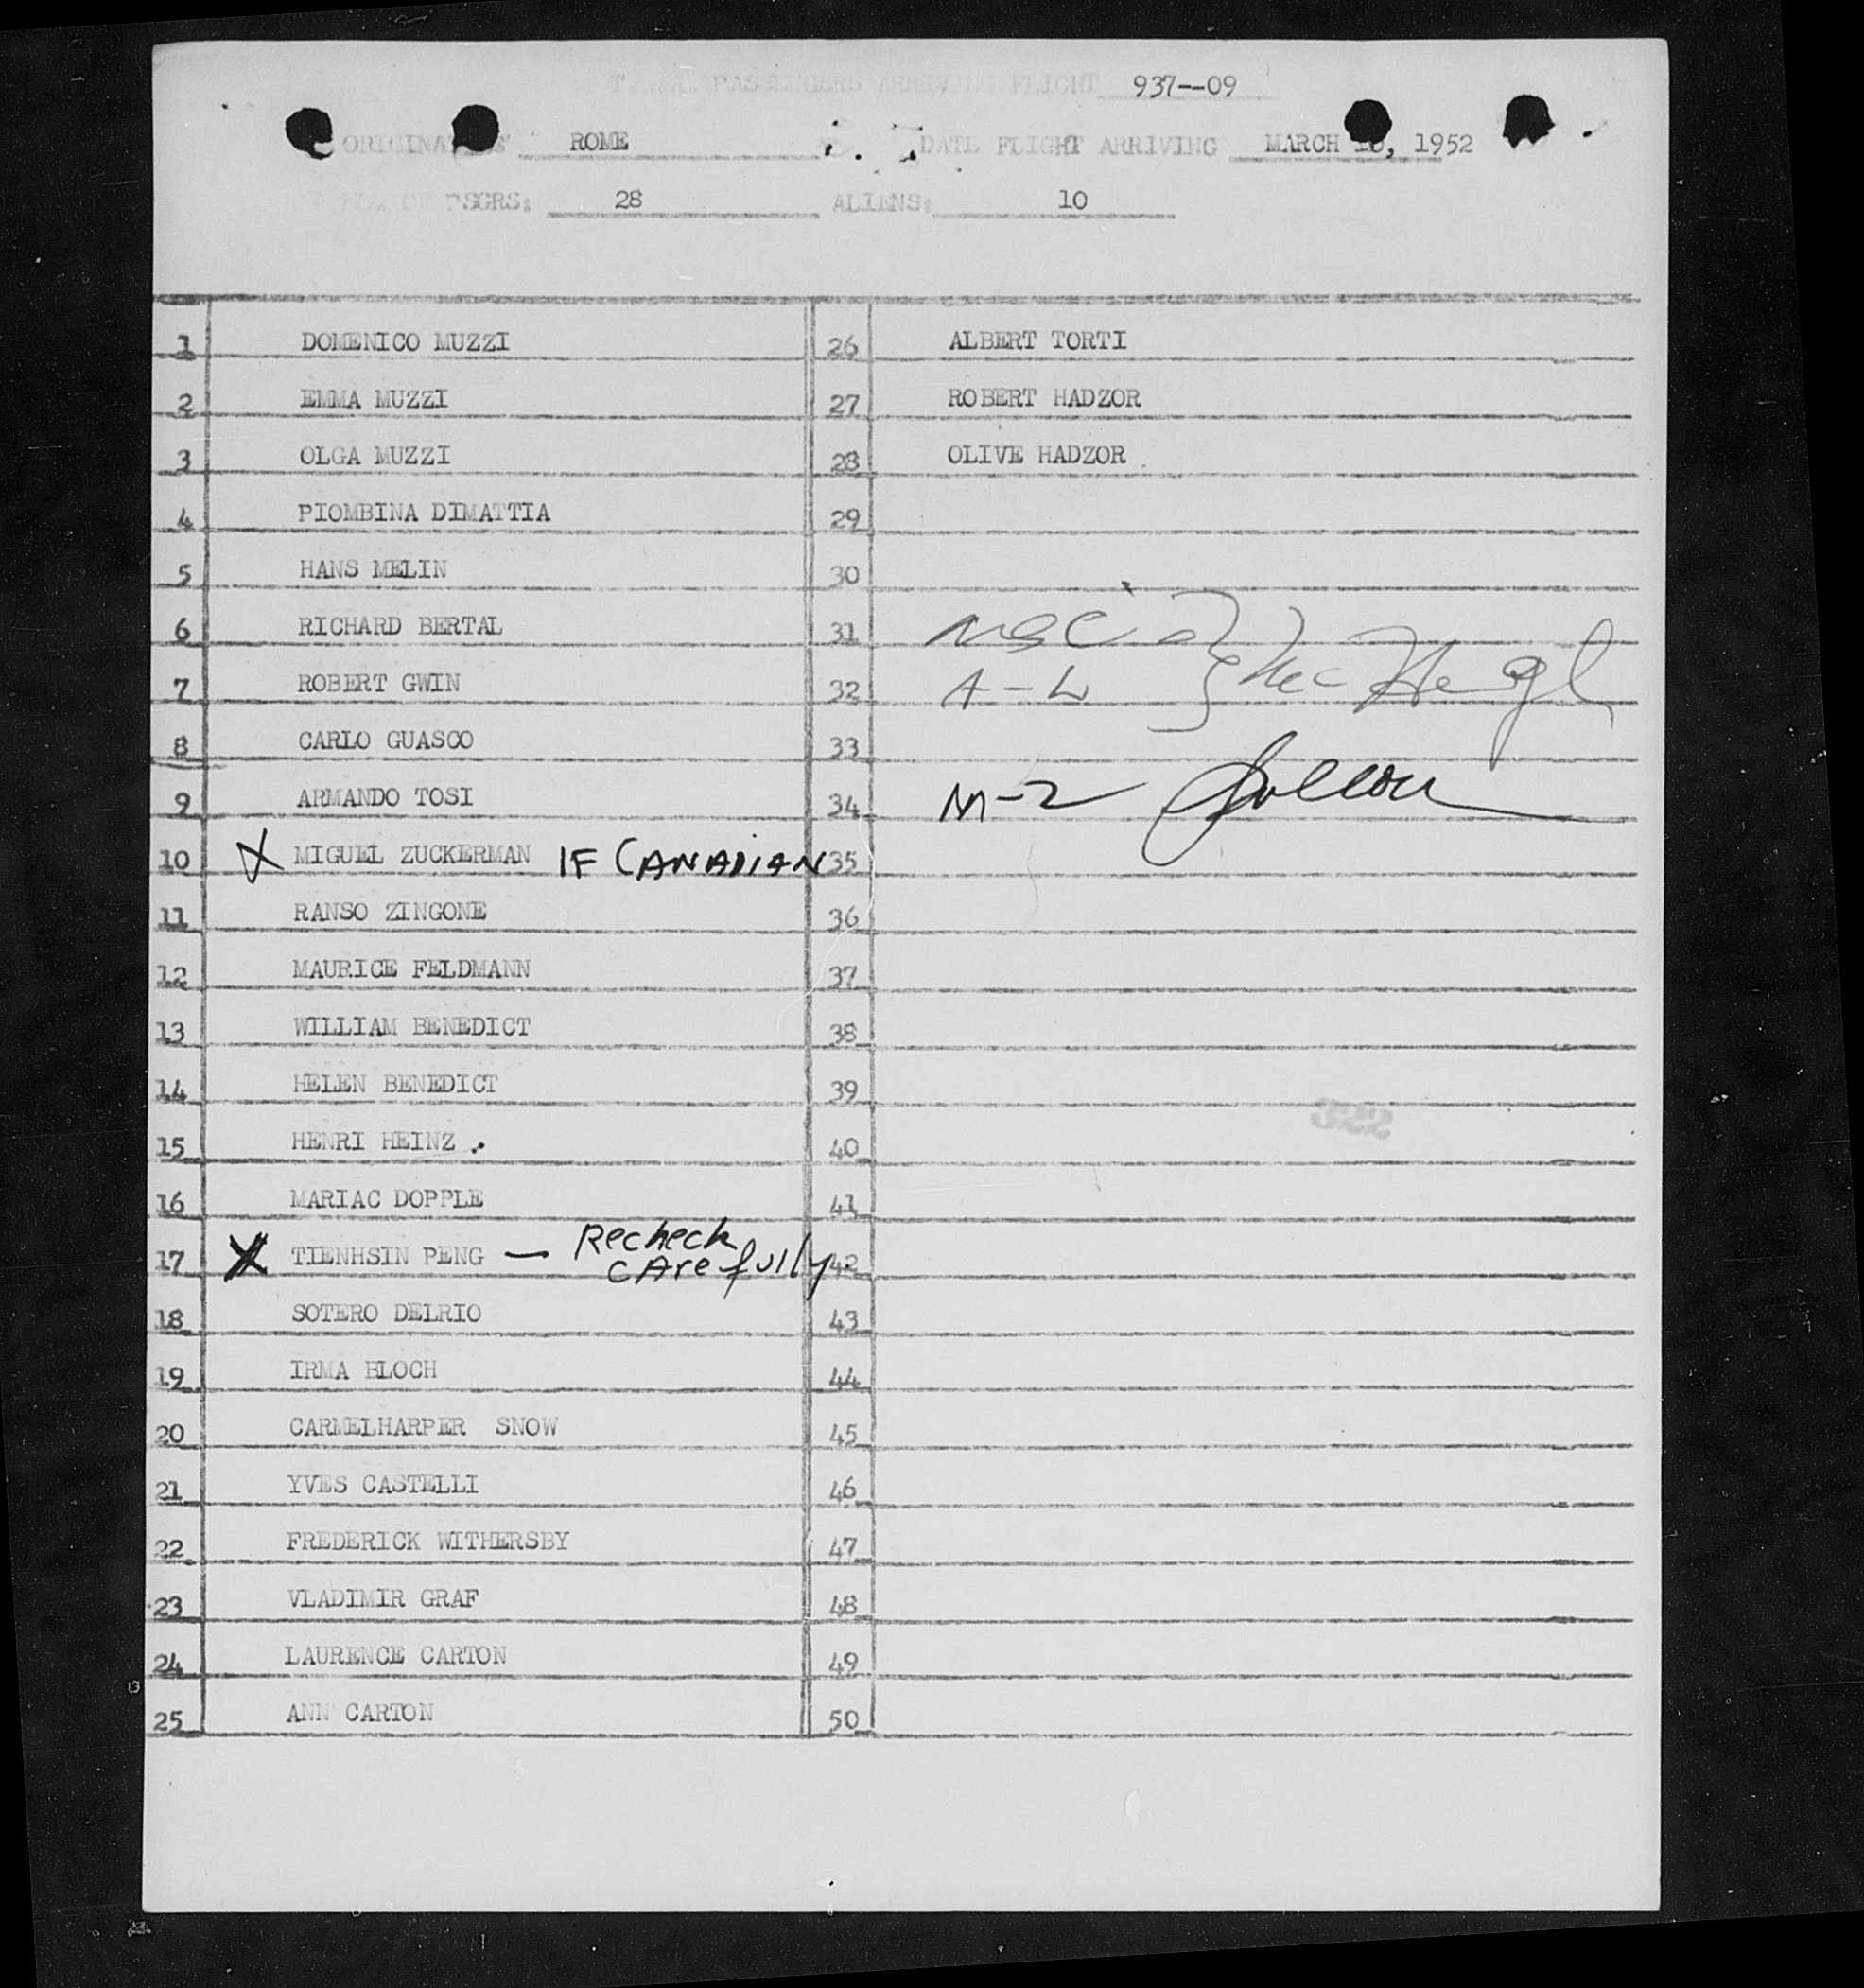 PASSENGERS ARRIVING FLIGHT 937--09
ROME DATE FLIGHT ARRIVING MARCH , 1952
PSGRS: 28 ALIENS: 10
1 DOMENICO MUZZI
2 EMMA MUZZI
3 OLGA MUZZI
4 PIOMBINA DIMATTIA
5 HANS MELIN
6 RICHARD BERTAL
7 ROBERT GWIN
8 CARLO GUASCO
9 ARMANDO TOSI
10 X MIGUEL ZUCKERMAN IF CANADIAN
11 RANSO ZINGONE
12 MAURICE FELDMANN
13 WILLIAM BENEDICT
14 HELEN BENEDICT
15 HENRI HEINZ .
16 MARIAC DOPPLE
17 X TIENHSIN PENG — Recheck
carefully
18 SOTERO DELRIO
19 IRMA BLOCH
20 CARMELHARPER SNOW
21 YVES CASTELLI
22 FREDERICK WITHERSBY
23 VLADIMIR GRAF
24 LAURENCE CARTON
25 ANN CARTON
26 ALBERT TORTI
27 ROBERT HADZOR
28 OLIVE HADZOR
29
30
31
32 A-L
33
34 M-Z
35
36
37
38
39
322
40
41
42
43
44
45
46
47
48
49
50